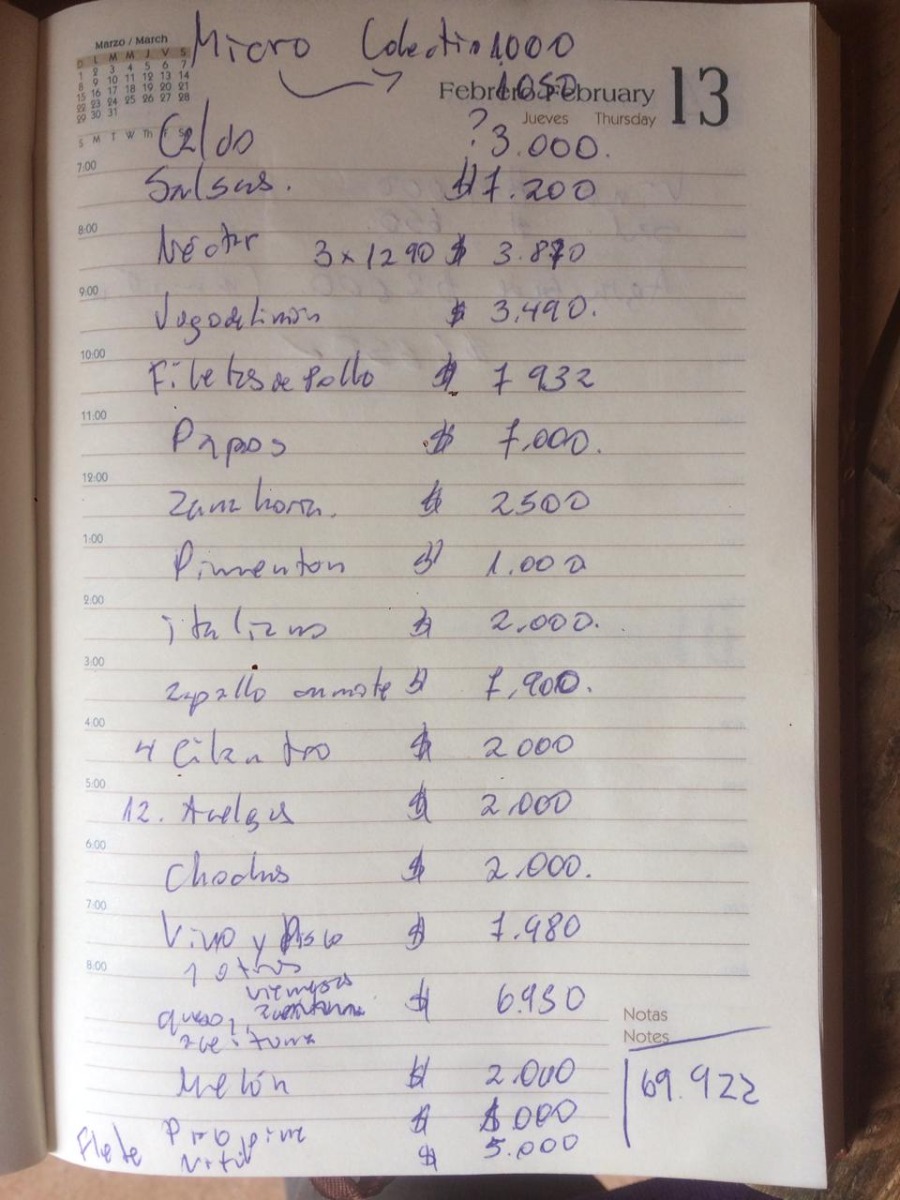 Marzo / March
D L M M J V S
1 2 3 4 5 6 7
8 9 10 11 12 13 14
15 16 17 18 19 20 21
22 23 24 25 26 27 28
29 30 31
S M T W Th F S
Micro Colectivo 1000
1050
Febrero February 13
Jueves Thursday
Caldo ? 3.000.
7:00
Salsas. $ 7.200
8:00
Néctar 3 x 1290 $ 3.870
9:00
Jugo de limón $ 3.490.
10:00
Filetes de Pollo $ 7932
11:00
Papas $ 7.000.
12:00
Zanahoria. $ 2500
1:00
Pimenton $ 1.000
2:00
italiano $ 2.000.
3:00
zapallo camote $ 7.900.
4:00
4 Cilantro $ 2000
5:00
12. Acelgas $ 2.000
6:00
Choclos $ 2.000.
7:00
Vino y Pisco $ 7.980
8:00
y otros
queso, $ 6.950
aceituna
Notas
Notes
69.922
Melón $ 2.000
Propina $ 1.000
Flete $ 5.000